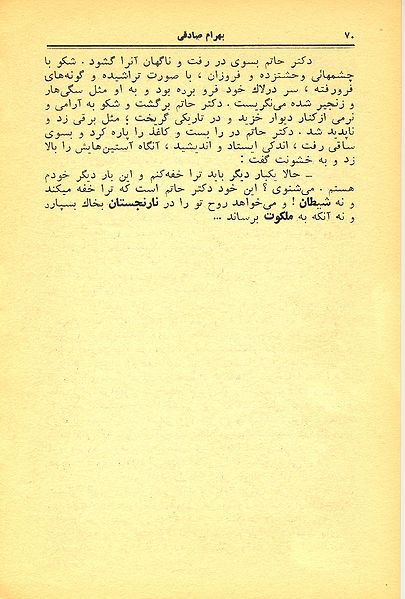 ۷۰ بهرام صادقی
دکتر حاتم بسوی در رفت و ناگهان آنرا گشود . شکو با
چشمهائی وحشتزده و فروزان ، با صورت تراشیده و گونه‌های
فرورفته ، سر درلاك خود فرو برده بود و به او مثل سگی‌هار
و زنجیر شده می‌نگریست . دکتر حاتم برگشت و شکو به آرامی و
نرمی ازکنار دیوار خزید و در تاریکی گریخت ؛ مثل برقی زد و
ناپدید شد . دکتر حاتم در را بست و کاغذ را پاره کرد و بسوی
ساقی رفت ، اندکی ایستاد و اندیشید ، آنگاه آستین‌هایش را بالا
زد و به خشونت گفت :
ــ حالا یکبار دیگر باید ترا خفه‌کنم و این بار دیگر خودم
هستم . می‌شنوی ؟ این خود دکتر حاتم است که ترا خفه میکند
و نه شیطان ! و می‌خواهد روح تو را در نارنجستان بخاك بسپارد
و نه آنکه به ملکوت برساند ...